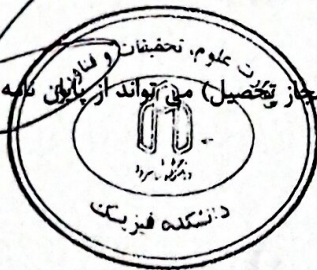 وزارت علوم، تحقیقات و فناوری
جاز تحصیل) می تواند از پایان نامه
دانشکده فیزیک